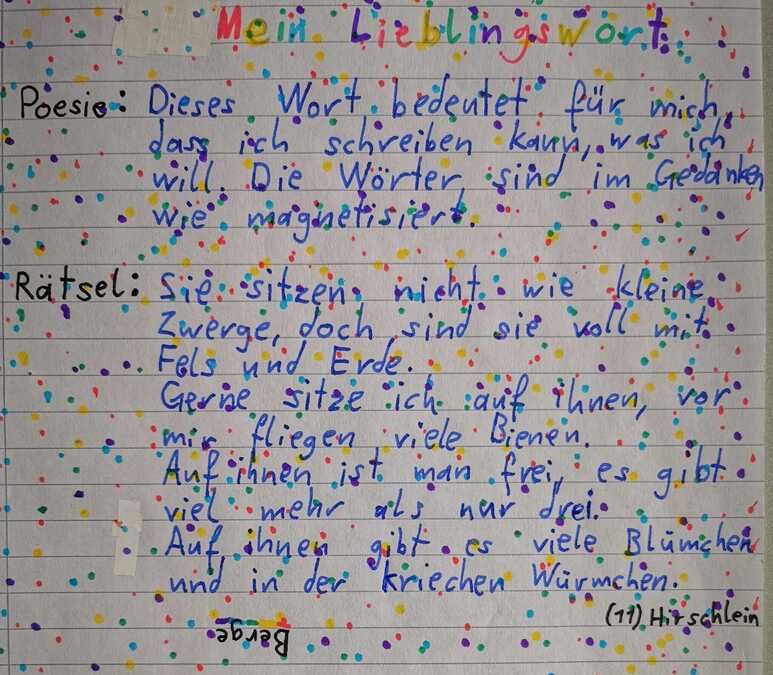 Mein Lieblingswort:
Poesie: Dieses Wort bedeutet für mich,
dass ich schreiben kann, was ich
will. Die Wörter sind im Gedanken
wie magnetisiert.
Rätsel: Sie sitzen nicht wie kleine
Zwerge, doch sind sie voll mit
Fels und Erde.
Gerne sitze ich auf ihnen, vor
mir fliegen viele Bienen.
Auf ihnen ist man frei, es gibt
viel mehr als nur drei.
Auf ihnen gibt es viele Blümchen
und in der kriechen Würmchen.
(11) Hirschlein
Berge